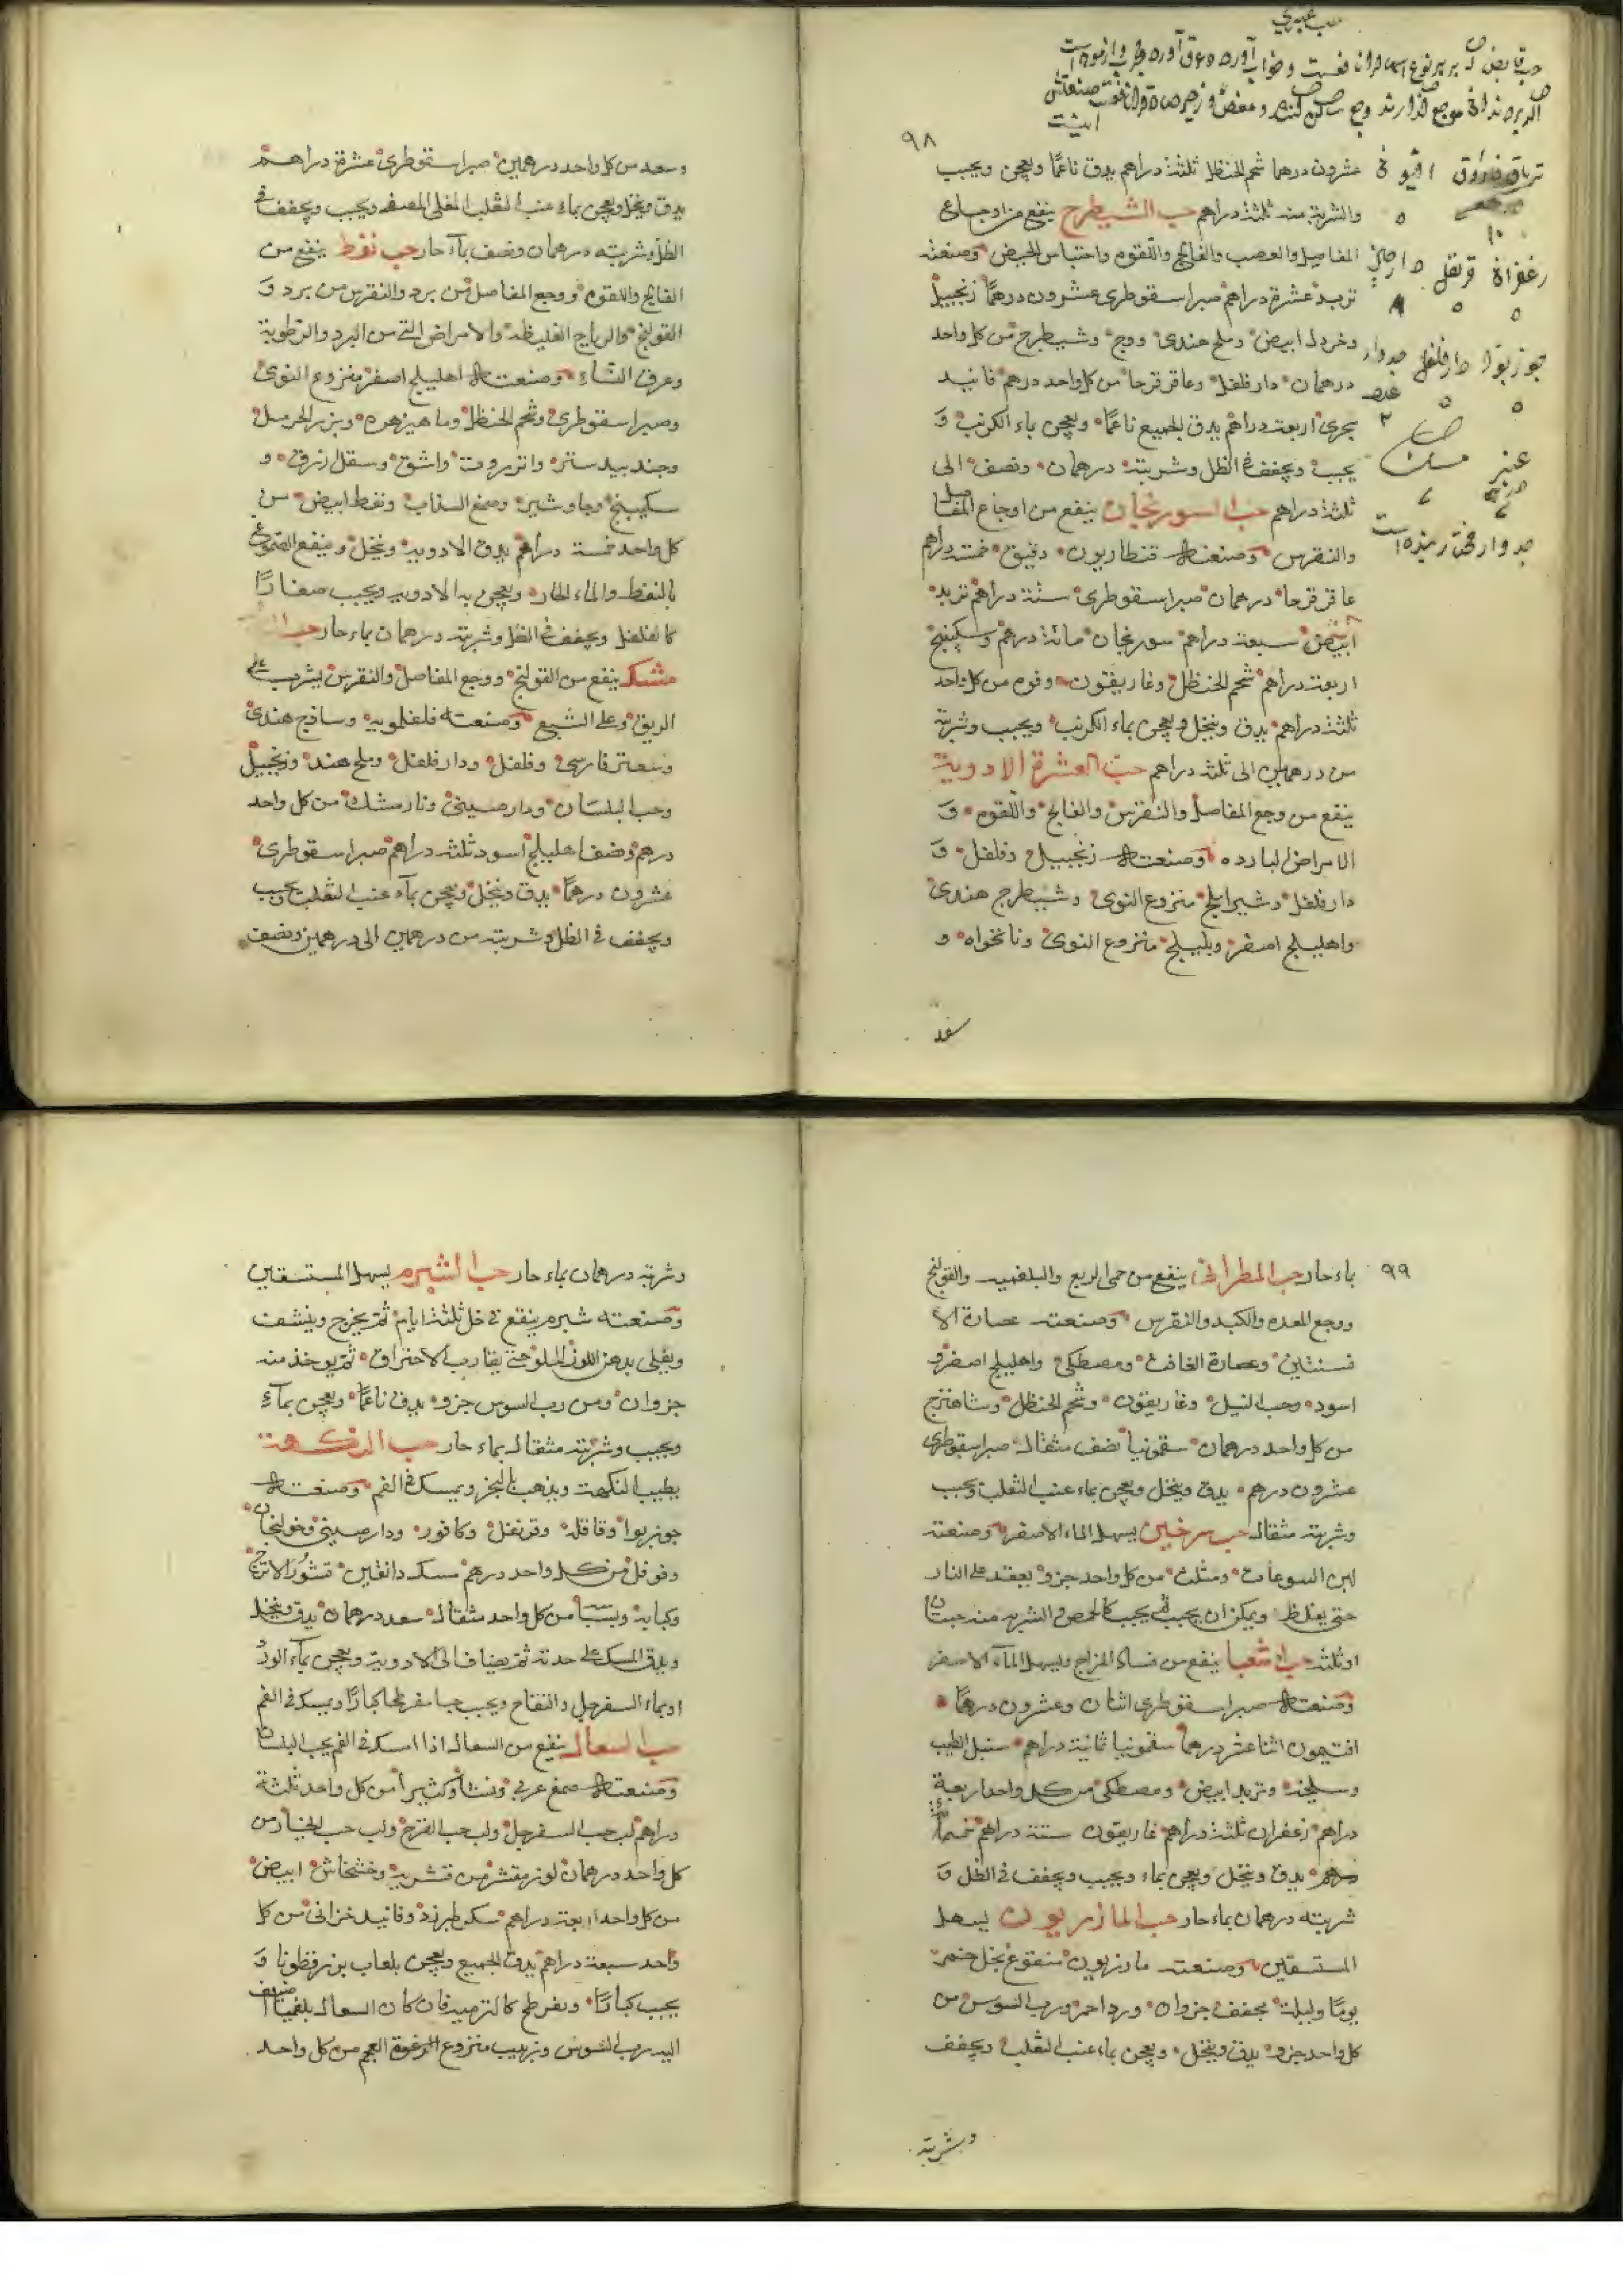 ٩٨
عشرون درهما شحم الحنظل ثلثة دراهم يدق ناعمًا ويعجن ويحبب
والشربة منه ثلثة دراهم حب الشيطرج ينفع من اوجاع
المفاصل والعصب والفالج واللقوه واحتباس الحيض وصنعته
تربد عشرة دراهم صبر اسقوطرى عشرون درهمًا زنجبيل
وخردل ابيض وملح هندى ووج وشيطرج من كل واحد
درهمان دار فلفل وعاقر قرحا من كل واحد درهم فانيد
سجزى اربعة دراهم يدق الجميع ناعمًا ويعجن بماء الكرنب و
يحبب ويجفف فى الظل وشربته درهمان ونصف الى
ثلثة دراهم حب السورنجان ينفع من اوجاع المفاصل
والنقرس وصنعته قنطاريون دقيق خمسة دراهم
عاقر قرحا درهمان صبر اسقوطرى ستة دراهم تربد
ابيض سبعة دراهم سورنجان مائة درهم وسكبينج
اربعة دراهم شحم الحنظل وغاريقون وفوه من كل واحد
ثلثة دراهم يدق وينخل ويعجن بماء الكرنب ويحبب وشربته
من درهمين الى ثلثة دراهم حب العشرة الادوية
ينفع من وجع المفاصل والنقرس والفالج واللقوه و
الامراض البارده وصنعته زنجبيل وفلفل و
دار فلفل وشير املج منزوع النوى وشيطرج هندى
واهليلج اصفر وبليلج منزوع النوى ونانخواه و
ترياق فاروق افيون
زعفران قرنفل دارچینی
جوزبوا دارفلفل جدوار
عنبر مسك
وسعد من كل واحد درهمين صبر اسقوطرى عشرة دراهم
يدق وينخل ويعجن بماء عنب الثعلب المغلى المصفى ويحبب ويجفف فى
الظل وشربته درهمان ونصف بماء حار حب نفط ينفع من
الفالج واللقوه ووجع المفاصل من برد والنقرس من برد و
القولنج والرياح الغليظة والامراض التى من البرد والرطوبة
وعرق النساء وصنعته اهليلج اصفر منزوع النوى
وصبر اسقوطرى وشحم الحنظل وماهيزهره وبزر الحرمل
وجندبيدستر وانزروت واشق ومقل ازرق و
سكبينج وجاوشير وصمغ السذاب ونفط ابيض من
كل واحد خمسة دراهم يدق الادوية وينخل وينقع الصموغ
بالنفط والماء الحار ويعجن به الادوية ويحبب صغارًا
كالفلفل ويجفف فى الظل وشربته درهمان بماء حار حب
مشك ينفع من القولنج ووجع المفاصل والنقرس يشرب على
الريق وعلى الشبع وصنعته فلفلمويه وساذج هندى
وسعتر فارسى وفلفل ودار فلفل وملح هند وزنجبيل
وحب البلسان ودارصينى ونارمشك من كل واحد
درهم ونصف اهليلج اسود ثلثة دراهم صبر اسقوطرى
عشرون درهمًا يدق وينخل ويعجن بماء عنب الثعلب ويحبب
ويجفف فى الظل وشربته من درهمين الى درهمين ونصف
٩٩
بماء حار حب المطرانى ينفع من حمى الربع والبلغميه والقولنج
ووجع المعده والكبد والنقرس وصنعته عصارة الا
فسنتين وعصارة الغافت ومصطكى واهليلج اصفر و
اسود وحب النيل وغاريقون وشحم الحنظل وشاهترج
من كل واحد درهمان سقمونيا نصف مثقال صبر اسقوطرى
عشرون درهم يدق وينخل ويعجن بماء عنب الثعلب ويحبب
وشربته مثقال حب سرخين يسهل الماء الاصفر وصنعته
لبن السوعات ومثلث من كل واحد جزو يعقد على النار
حتى يغلظ ويمكن ان يحبب ثم يحبب كالحمص والشربه منه حبتان
او ثلثة حب اشعيا ينفع من فساد المزاج ويسهل الماء الاصفر
وصنعته صبر اسقوطرى اثنان وعشرون درهمًا
افتيمون اثنا عشر درهما سقمونيا ثمانية دراهم سنبل الطيب
وسليخه وتربد ابيض ومصطكى من كل واحد اربعة
دراهم زعفران ثلثة دراهم غاريقون ستة دراهم
يدق وينخل ويعجن بماء ويحبب ويجفف فى الظل و
شربته درهمان بماء حار حب المازريون يسهل
المستسقين وصنعته مازريون منقوع بخل خمر
يومًا وليلة مجفف جزوان ورد احمر ورب السوس من
كل واحد جزو يدق وينخل ويعجن بماء عنب الثعلب ويجفف
وشربته
وشربته درهمان بماء حار حب الشبرم يسهل المستسقين
وصنعته شبرم ينقع فى خل ثلثة ايام ثم يخرج وينشف
ويغلى بدهن اللوز الحلو حتى يقارب الاحتراق ثم يوخذ منه
جزوان ومن رب السوس جزو يدق ناعمًا ويعجن بماء
ويحبب وشربته مثقال بماء حار حب النكهة
يطيب النكهة ويذهب بالبخر ويمسك فى الفم وصنعته
جوزبوا وقاقله وقرنفل وكافور ودارصينى وخولنجان
وفوفل من كل واحد درهم مسك دانقين قشور الاترج
وكبابه وبسباسه من كل واحد مثقال سعد درهمان يدق وينخل
ويدق المسك على حدته ثم يضاف الى الادوية ويعجن بماء الورد
او بماء السفرجل والتفاح ويحبب حبا مفرطحا كبارًا ويمسك فى الفم
حب السعال ينفع من السعال اذا امسك فى الفم تحت اللسان
وصنعته صمغ عربى ونشا وكثيرا من كل واحد ثلثة
دراهم لب حب السفرجل ولب حب القرع ولب حب الخيار من
كل واحد درهمان لوز مقشر من قشريه وخشخاش ابيض
من كل واحد اربعة دراهم سكر طبرزد وفانيد خزائنى من كل
واحد سبعة دراهم يدق الجميع ويعجن بلعاب بزر قطونا و
يحبب كبارًا ويفرطح كالترمس فان كان السعال بلغميا اضيف
اليه رب السوس وزبيب منزوع العجم من كل واحد